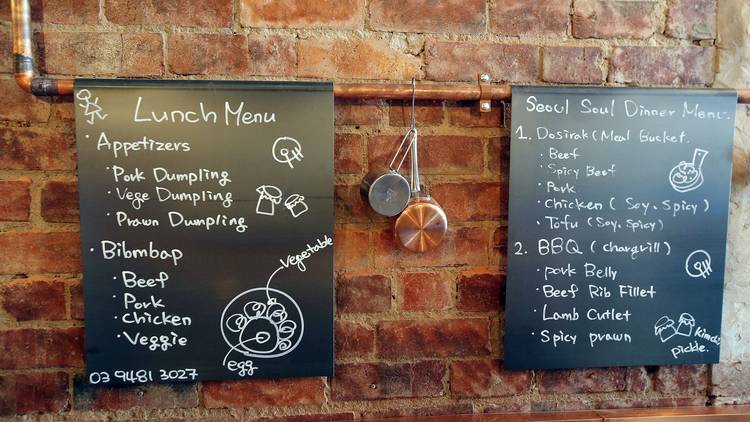 Lunch Menu
· Appetizers
· Pork Dumpling
· Vege Dumpling
· Prawn Dumpling
· Bibmbap
· Beef
· Pork
· Chicken
· Veggie
vegetable
egg
03 9481 3027
Seoul Soul Dinner Menu.
1. Dosirak (Meal Bucket.
· Beef
· Spicy Beef
· Pork
· Chicken (Soy. Spicy)
· Tofu (Soy. Spicy)
2. BBQ (chargrill)
· Pork Belly
· Beef Rib Fillet
· Lamb Cutlet
· Spicy prawn
pickle.